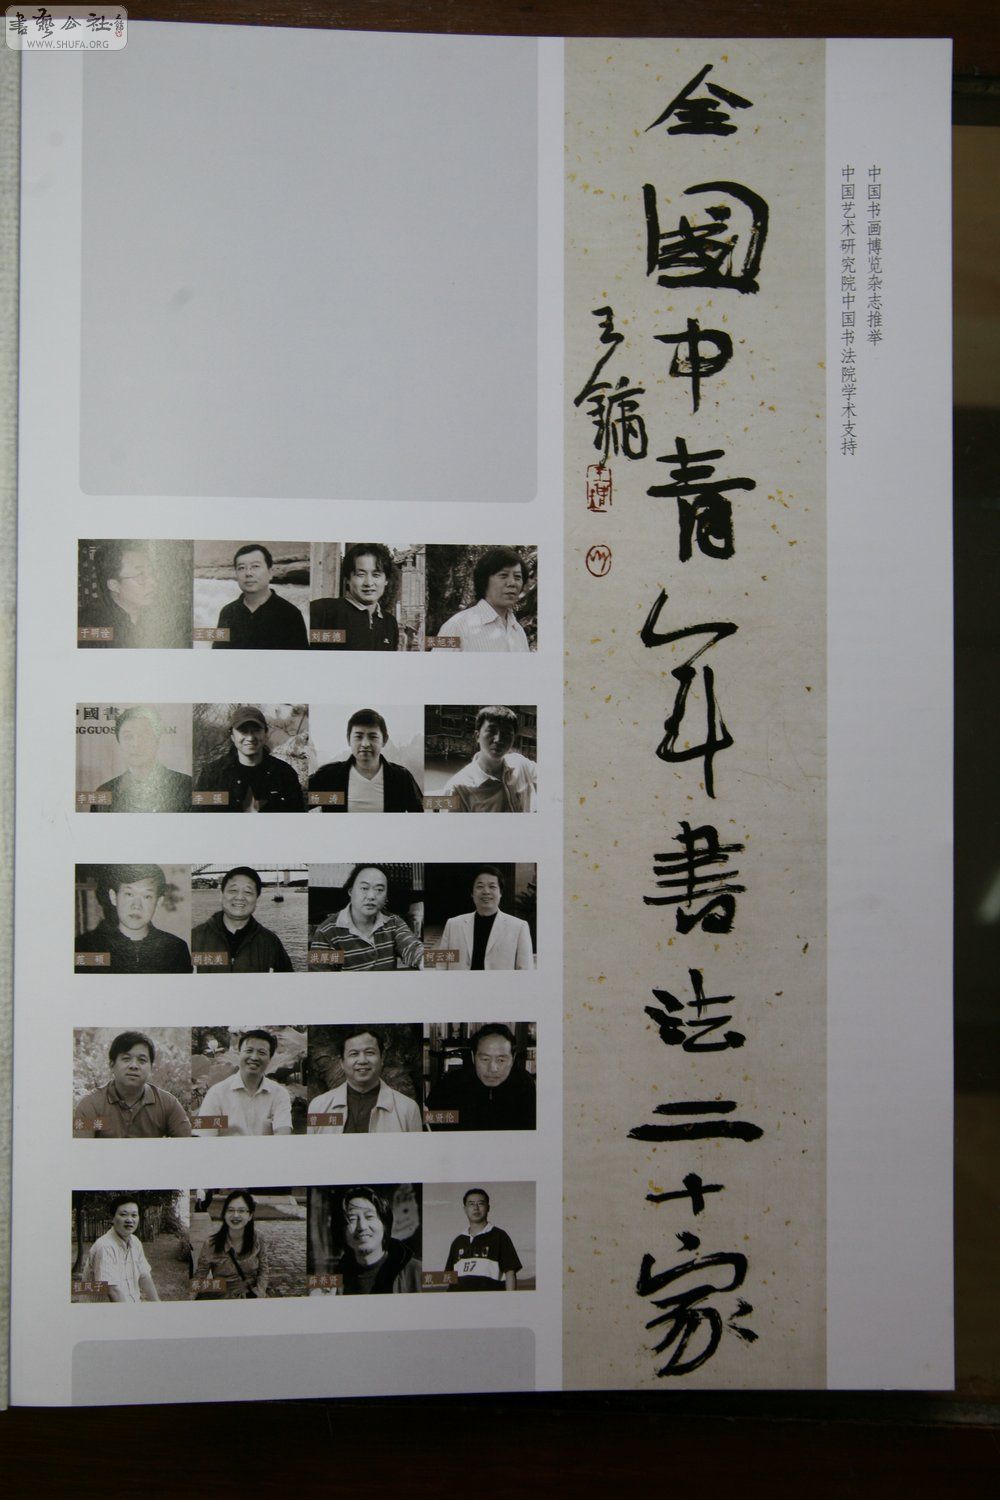 書藝公社
WWW.SHUFA.ORG
中国书画博览杂志推举
中国艺术研究院中国书法院学术支持
全國中青年書法二十家
王鏞
于明诠
王家新
刘新德
张旭光
中國書
李胜洪
李强
杨涛
肖文飞
范硕
胡抗美
洪厚甜
柯云瀚
徐海
萧风
曾翔
鲍贤伦
程风子
蔡梦霞
薛养贤
戴跃
67